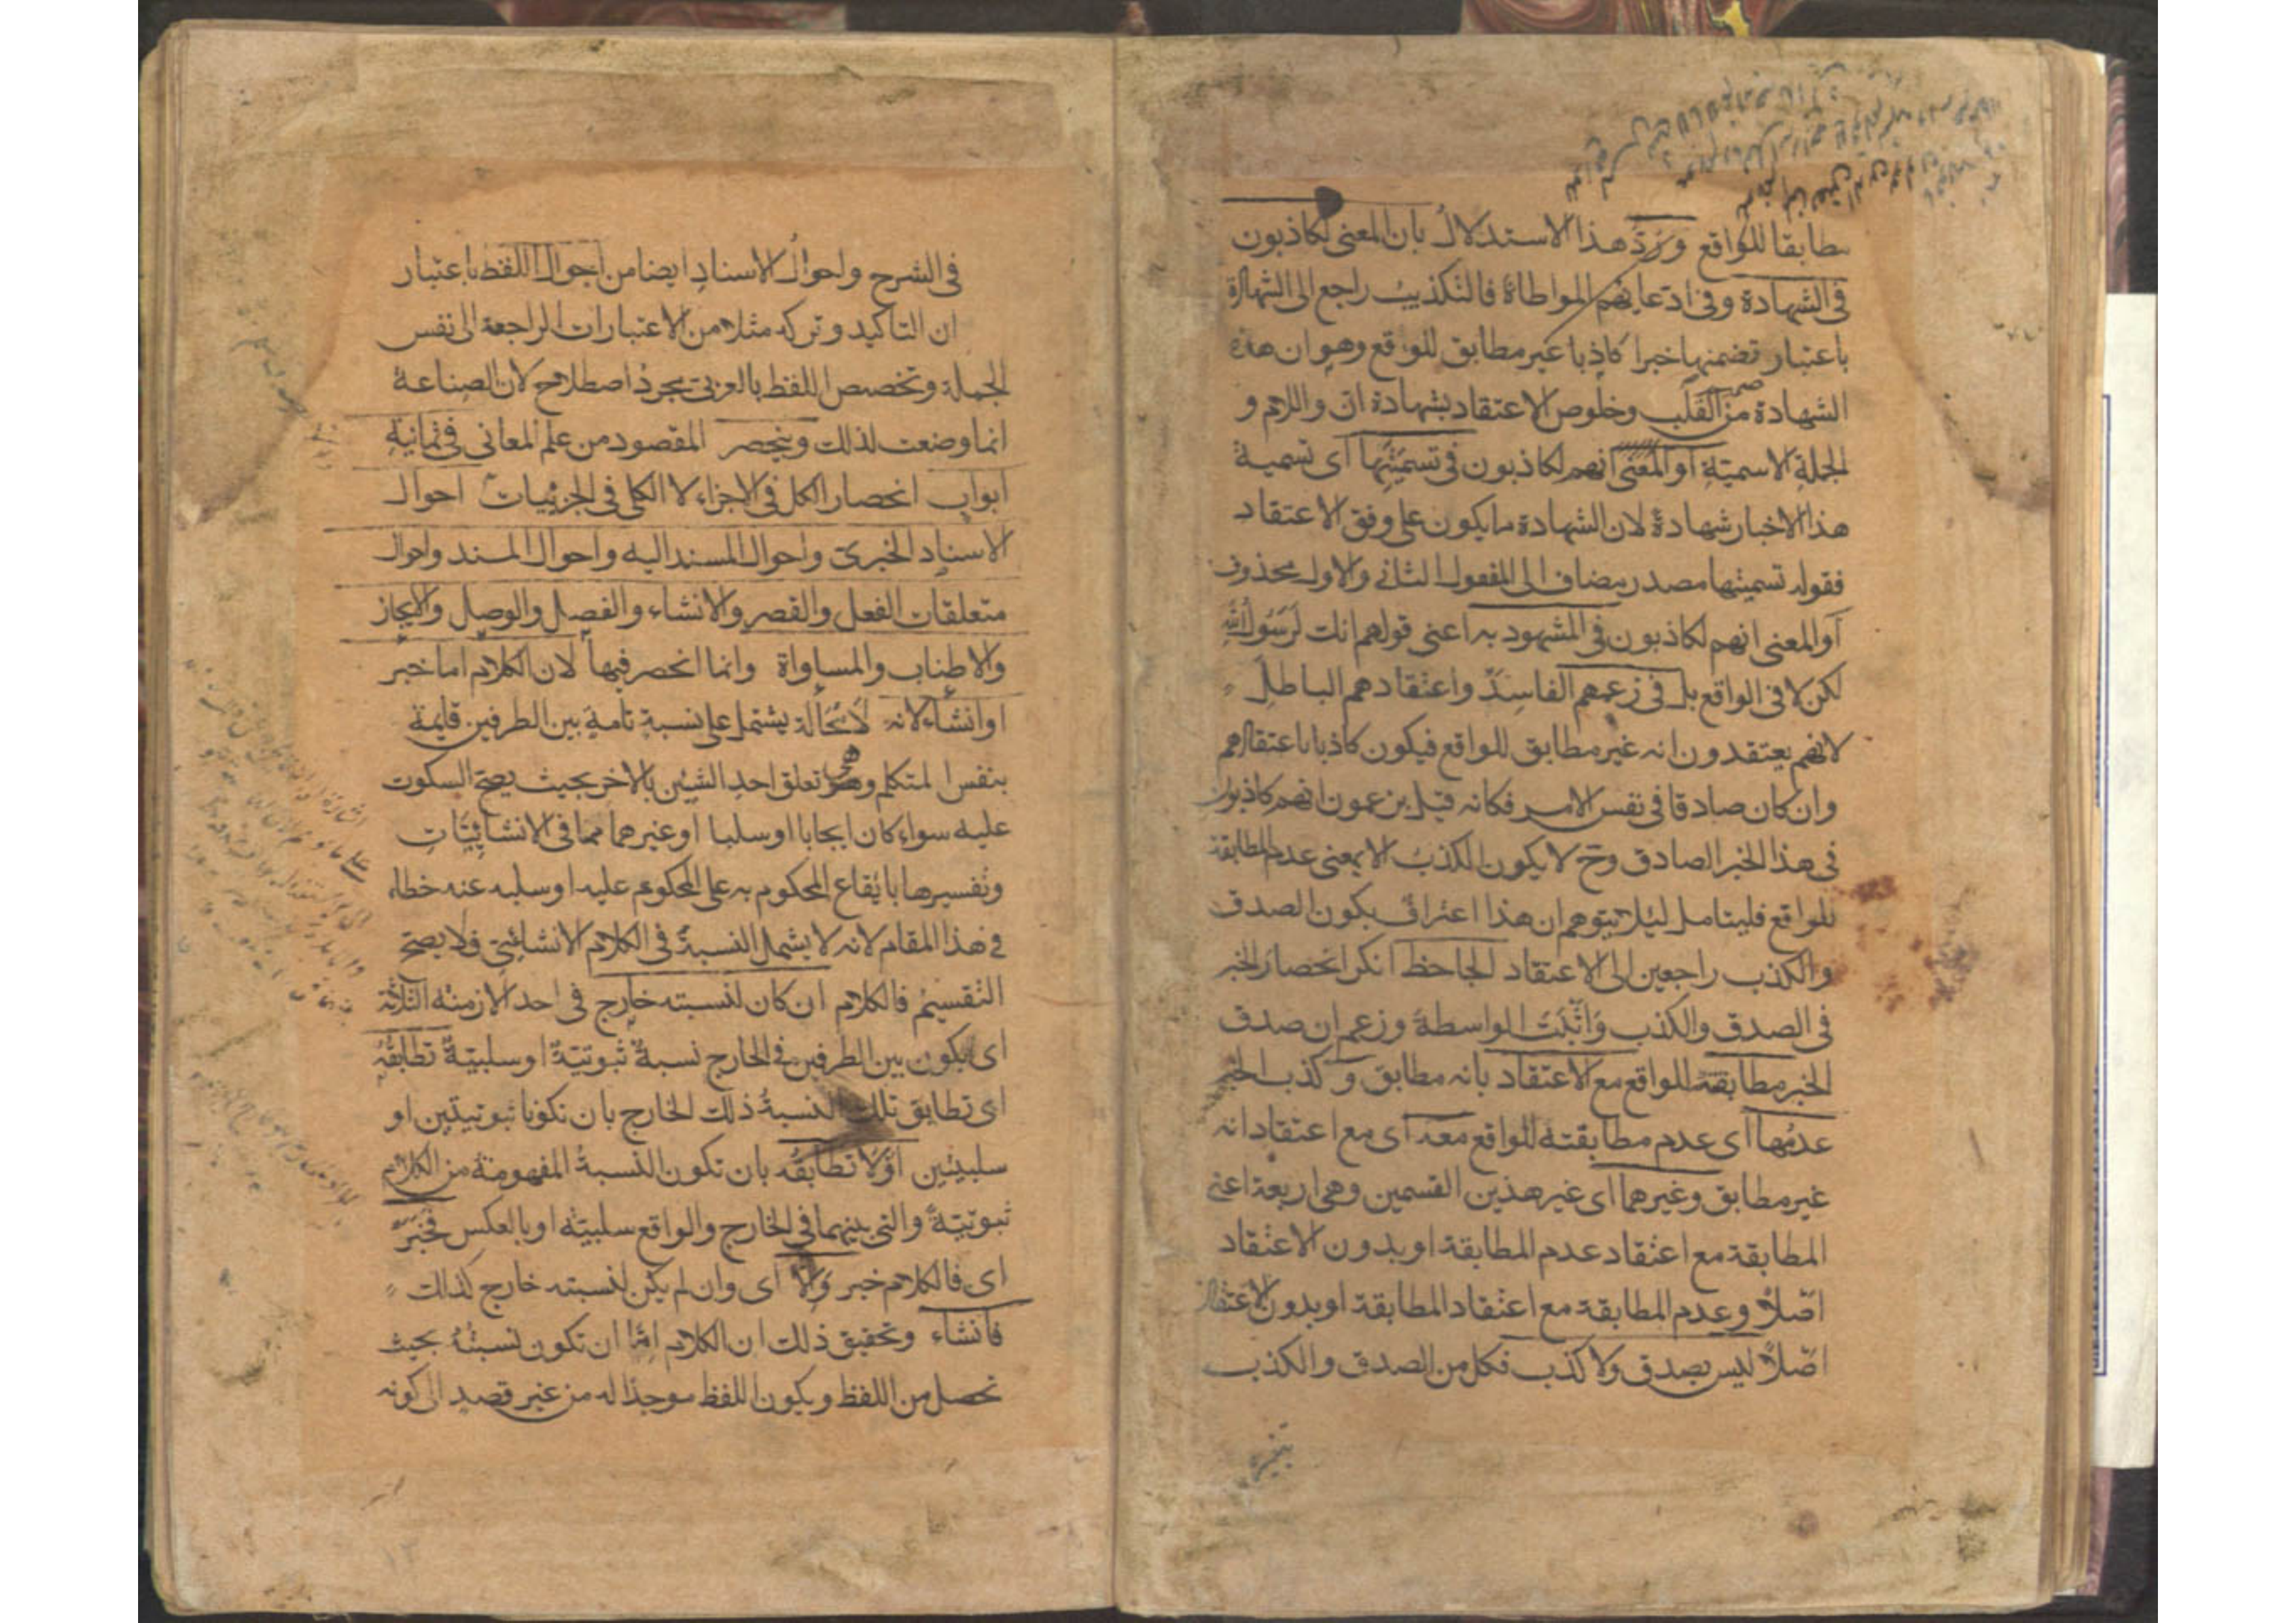 مطابقا للواقع ورد هذا الاستدلال بان المعنى لكاذبون
فى الشهادة وفى ادعائهم المواطاة فالتكذيب راجع الى الشهادة
باعتبار تضمنها خبرا كاذبا غير مطابق للواقع وهو ان هذه
الشهادة من صميم القلب وخلوص الاعتقاد بشهادة ان واللام و
الجملة الاسمية او المعنى انهم لكاذبون فى تسميتها اى تسمية
هذا الاخبار شهادة لان الشهادة ما يكون على وفق الاعتقاد
فقوله تسميتها مصدر مضاف الى المفعول الثانى والاول محذوف
او المعنى انهم لكاذبون فى المشهود به اعنى قولهم انك لرسول الله
لكن لا فى الواقع بل فى زعمهم الفاسد واعتقادهم الباطل
لانهم يعتقدون انه غير مطابق للواقع فيكون كاذبا باعتقادهم
وان كان صادقا فى نفس الامر فكانه قيل يزعمون انهم كاذبون
فى هذا الخبر الصادق وح لا يكون الكذب الا بمعنى عدم المطابقة
للواقع فليتامل ليلا يتوهم ان هذا اعتراف بكون الصدق
والكذب راجعين الى الاعتقاد الجاحظ انكر انحصار الخبر
فى الصدق والكذب واثبت الواسطة وزعم ان صدق
الخبر مطابقته للواقع مع الاعتقاد بانه مطابق وكذب الخبر
عدمها اى عدم مطابقته للواقع معه اى مع اعتقاد انه
غير مطابق وغيرهما اى غير هذين القسمين وهى اربعة اعنى
المطابقة مع اعتقاد عدم المطابقة او بدون الاعتقاد
اصلا وعدم المطابقة مع اعتقاد المطابقة او بدون الاعتقاد
اصلا ليس بصدق ولا كذب فكل من الصدق والكذب
فى الشرح واحوال الاسناد ايضا من احوال اللفظ باعتبار
ان التاكيد وتركه مثلا من الاعتبارات الراجعة الى نفس
الجملة وتخصيص اللفظ بالعربى مجرد اصطلاح لان الصناعة
انما وضعت لذلك وينحصر المقصود من علم المعانى فى ثمانية
ابواب انحصار الكل فى الاجزاء لا الكلى فى الجزئيات احوال
الاسناد الخبرى واحوال المسند اليه واحوال المسند واحوال
متعلقات الفعل والقصر والانشاء والفصل والوصل والايجاز
والاطناب والمساواة وانما انحصر فيها لان الكلام اما خبر
او انشاء لانه لا محالة يشتمل على نسبة تامة بين الطرفين قايمة
بنفس المتكلم وهى تعلق احد الشيئين بالاخر بحيث يصح السكوت
عليه سواء كان ايجابا او سلبا او غيرهما مما فى الانشائيات
وتفسيرها بايقاع المحكوم به على المحكوم عليه او سلبه عنه خطاء
فى هذا المقام لانه لا يشمل النسبة فى الكلام الانشائى فلا يصح
التقسيم فالكلام ان كان لنسبته خارج فى احد الازمنة الثلاثة
اى يكون بين الطرفين فى الخارج نسبة ثبوتية او سلبية تطابقه
اى تطابق تلك النسبة ذلك الخارج بان تكونا ثبوتيتين او
سلبيتين او لا تطابقه بان تكون النسبة المفهومة من الكلام
ثبوتية والتى بينهما فى الخارج والواقع سلبية او بالعكس فخبر
اى فالكلام خبر والا اى وان لم يكن لنسبته خارج كذلك
فانشاء وتحقيق ذلك ان الكلام اما ان تكون نسبته بحيث
تحصل من اللفظ ويكون اللفظ موجدا له من غير قصد الى كونه